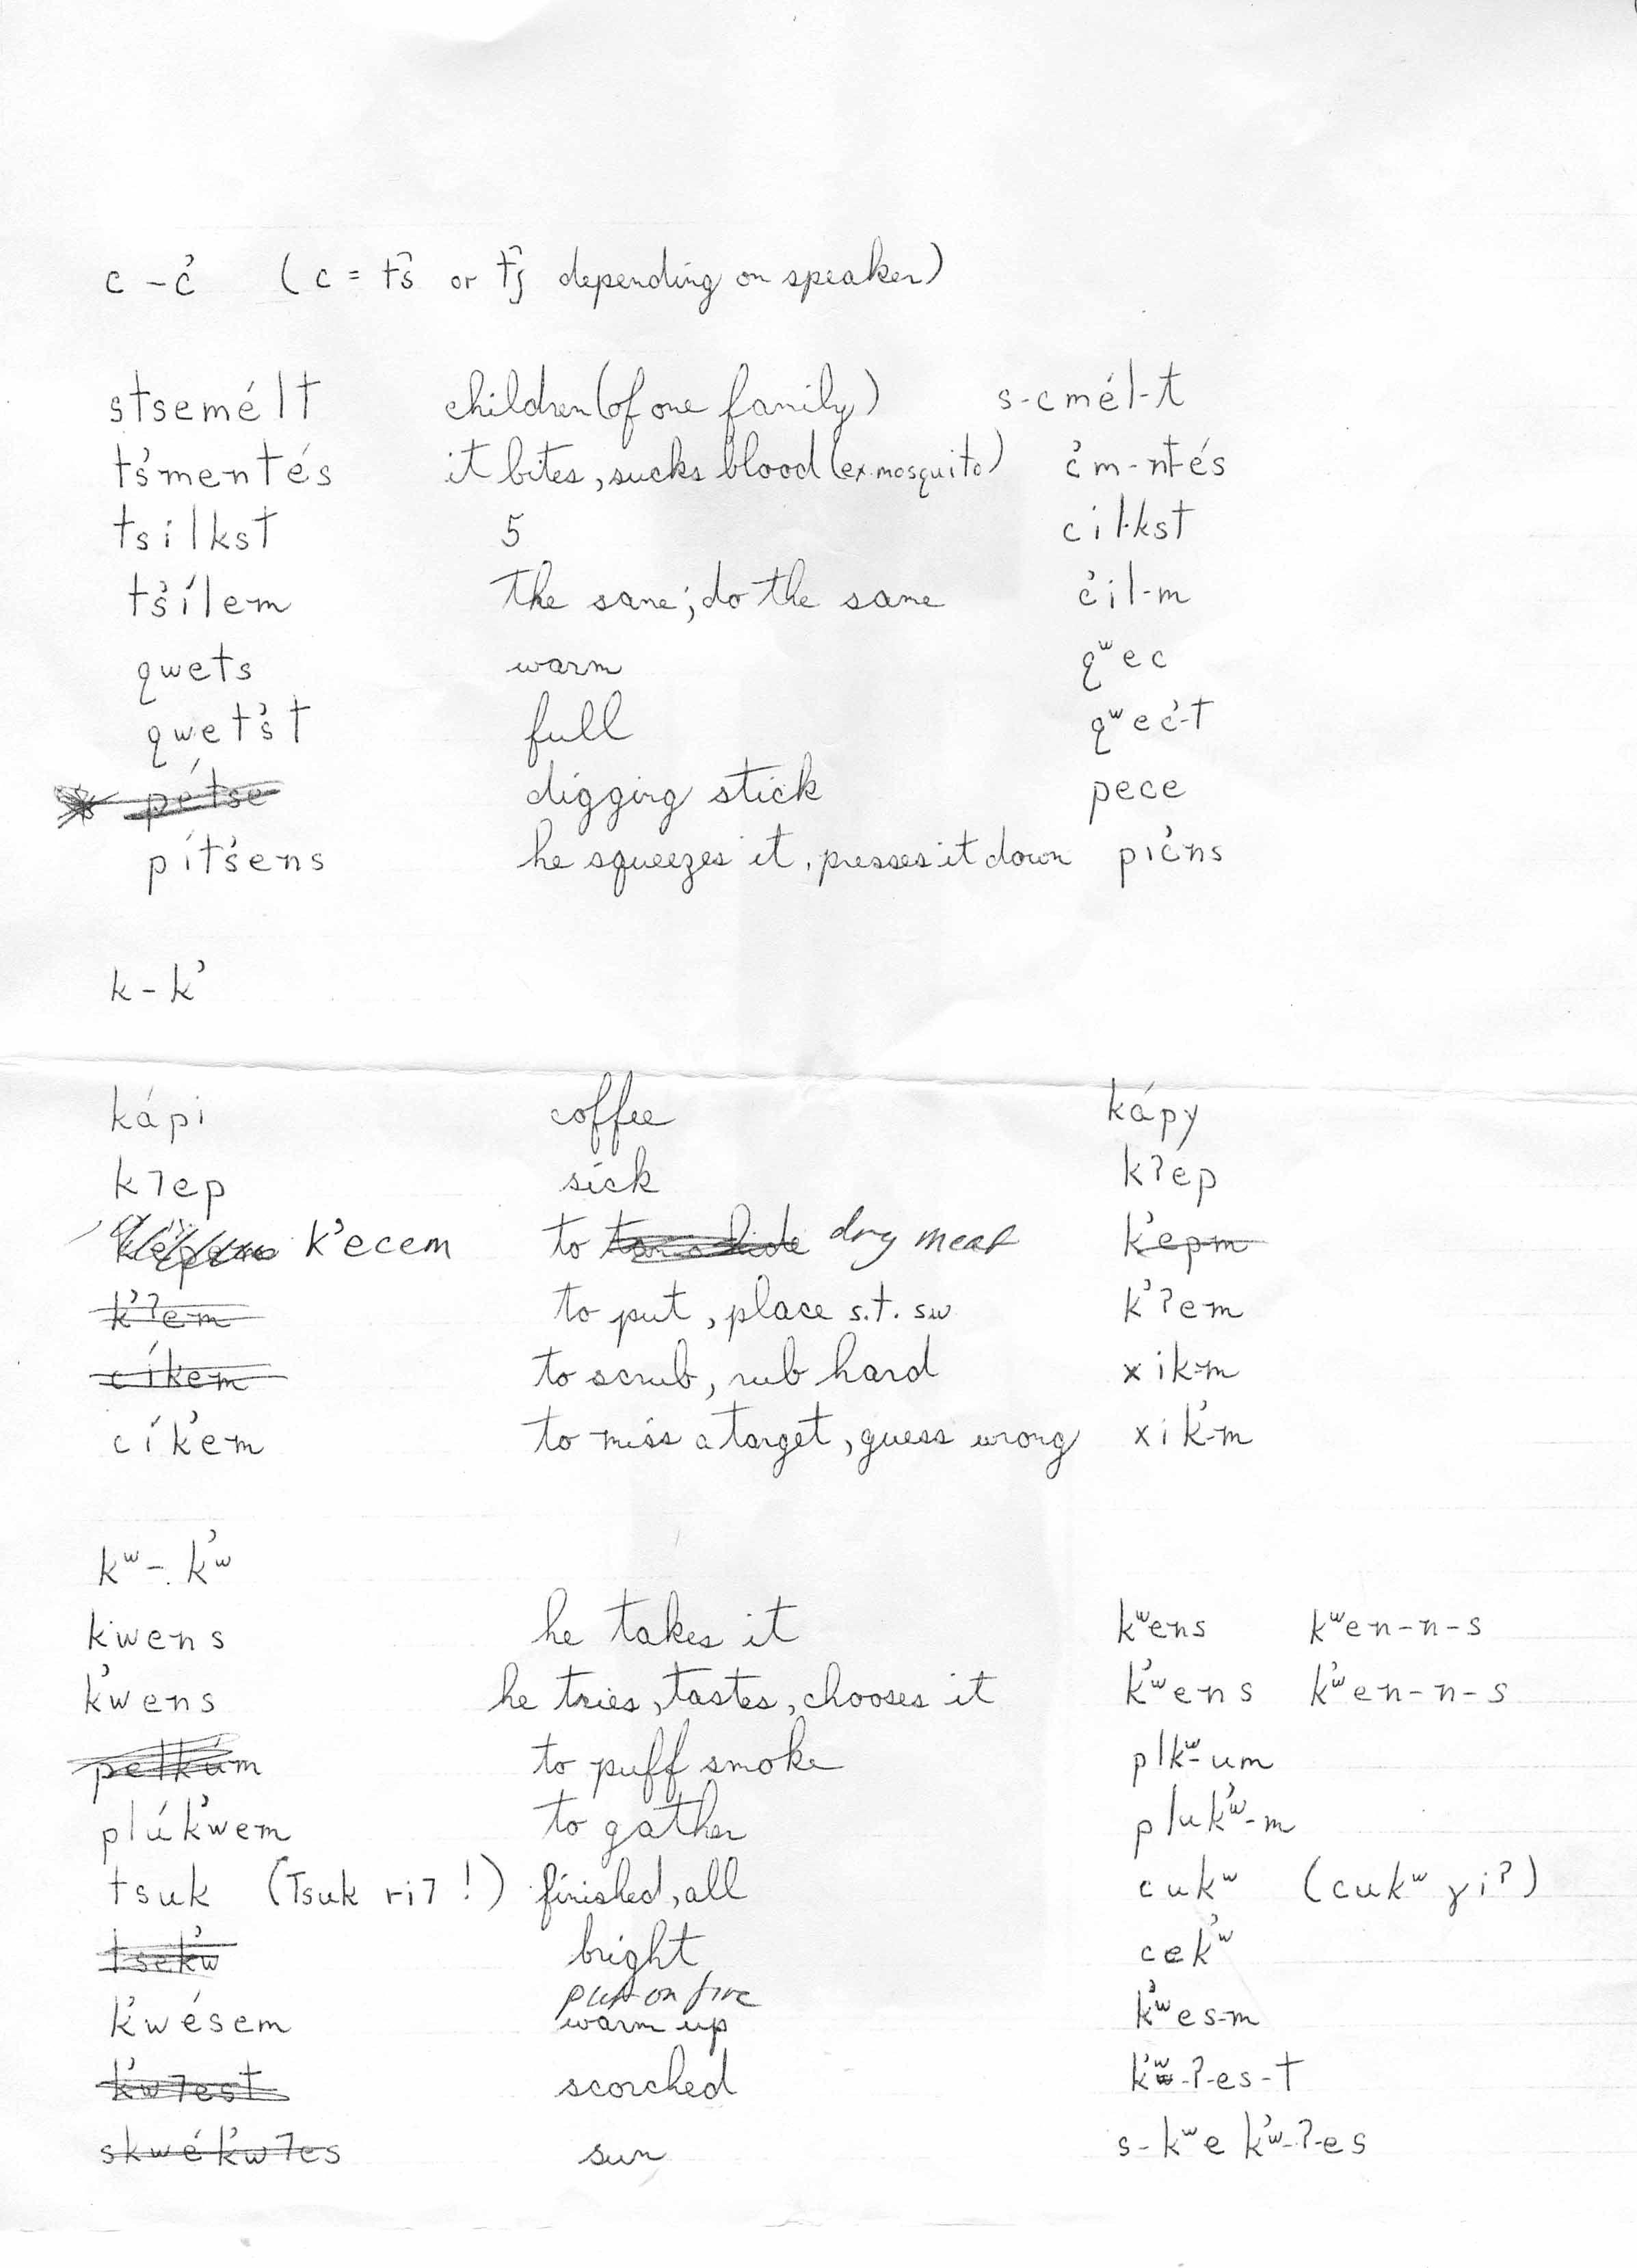 c - c̓ (c = t͡s or t͡ʃ depending on speaker)
stsemélt children (of one family) s-cmél-t
ts̓mentés it bites, sucks blood (ex. mosquito) c̓m-nt-és
tsilkst 5 cil-kst
ts̓ílem the same; do the same c̓il-m
qwets warm qʷec
qwets̓t full qʷec̓-t
pétse digging stick pece
píts̓ens he squeezes it, presses it down pic̓ns
k - k̓
kápi coffee kápy
k7ep sick kʔép
k̓ecem to dry meat k̓epm
k̓ʔem to put, place s.t. sw k̓ʔem
cíkem to scrub, rub hard xik-m
cík̓em to miss a target, guess wrong xik̓-m
kʷ - k̓ʷ
kwens he takes it kʷens kʷen-n-s
k̓wens he tries, tastes, chooses it k̓ʷens k̓ʷen-n-s
pelkúm to puff smoke plkʷ-um
plúk̓wem to gather pluk̓ʷ-m
tsuk (Tsuk ri7!) finished, all cukʷ (cukʷ ɣiʔ)
tsek̓w bright cek̓ʷ
put on fire
k̓wésem warm up k̓ʷes-m
k̓w7est scorched k̓ʷ-ʔ-es-t
skwék̓w7es sun s-kʷe k̓ʷ-ʔ-es